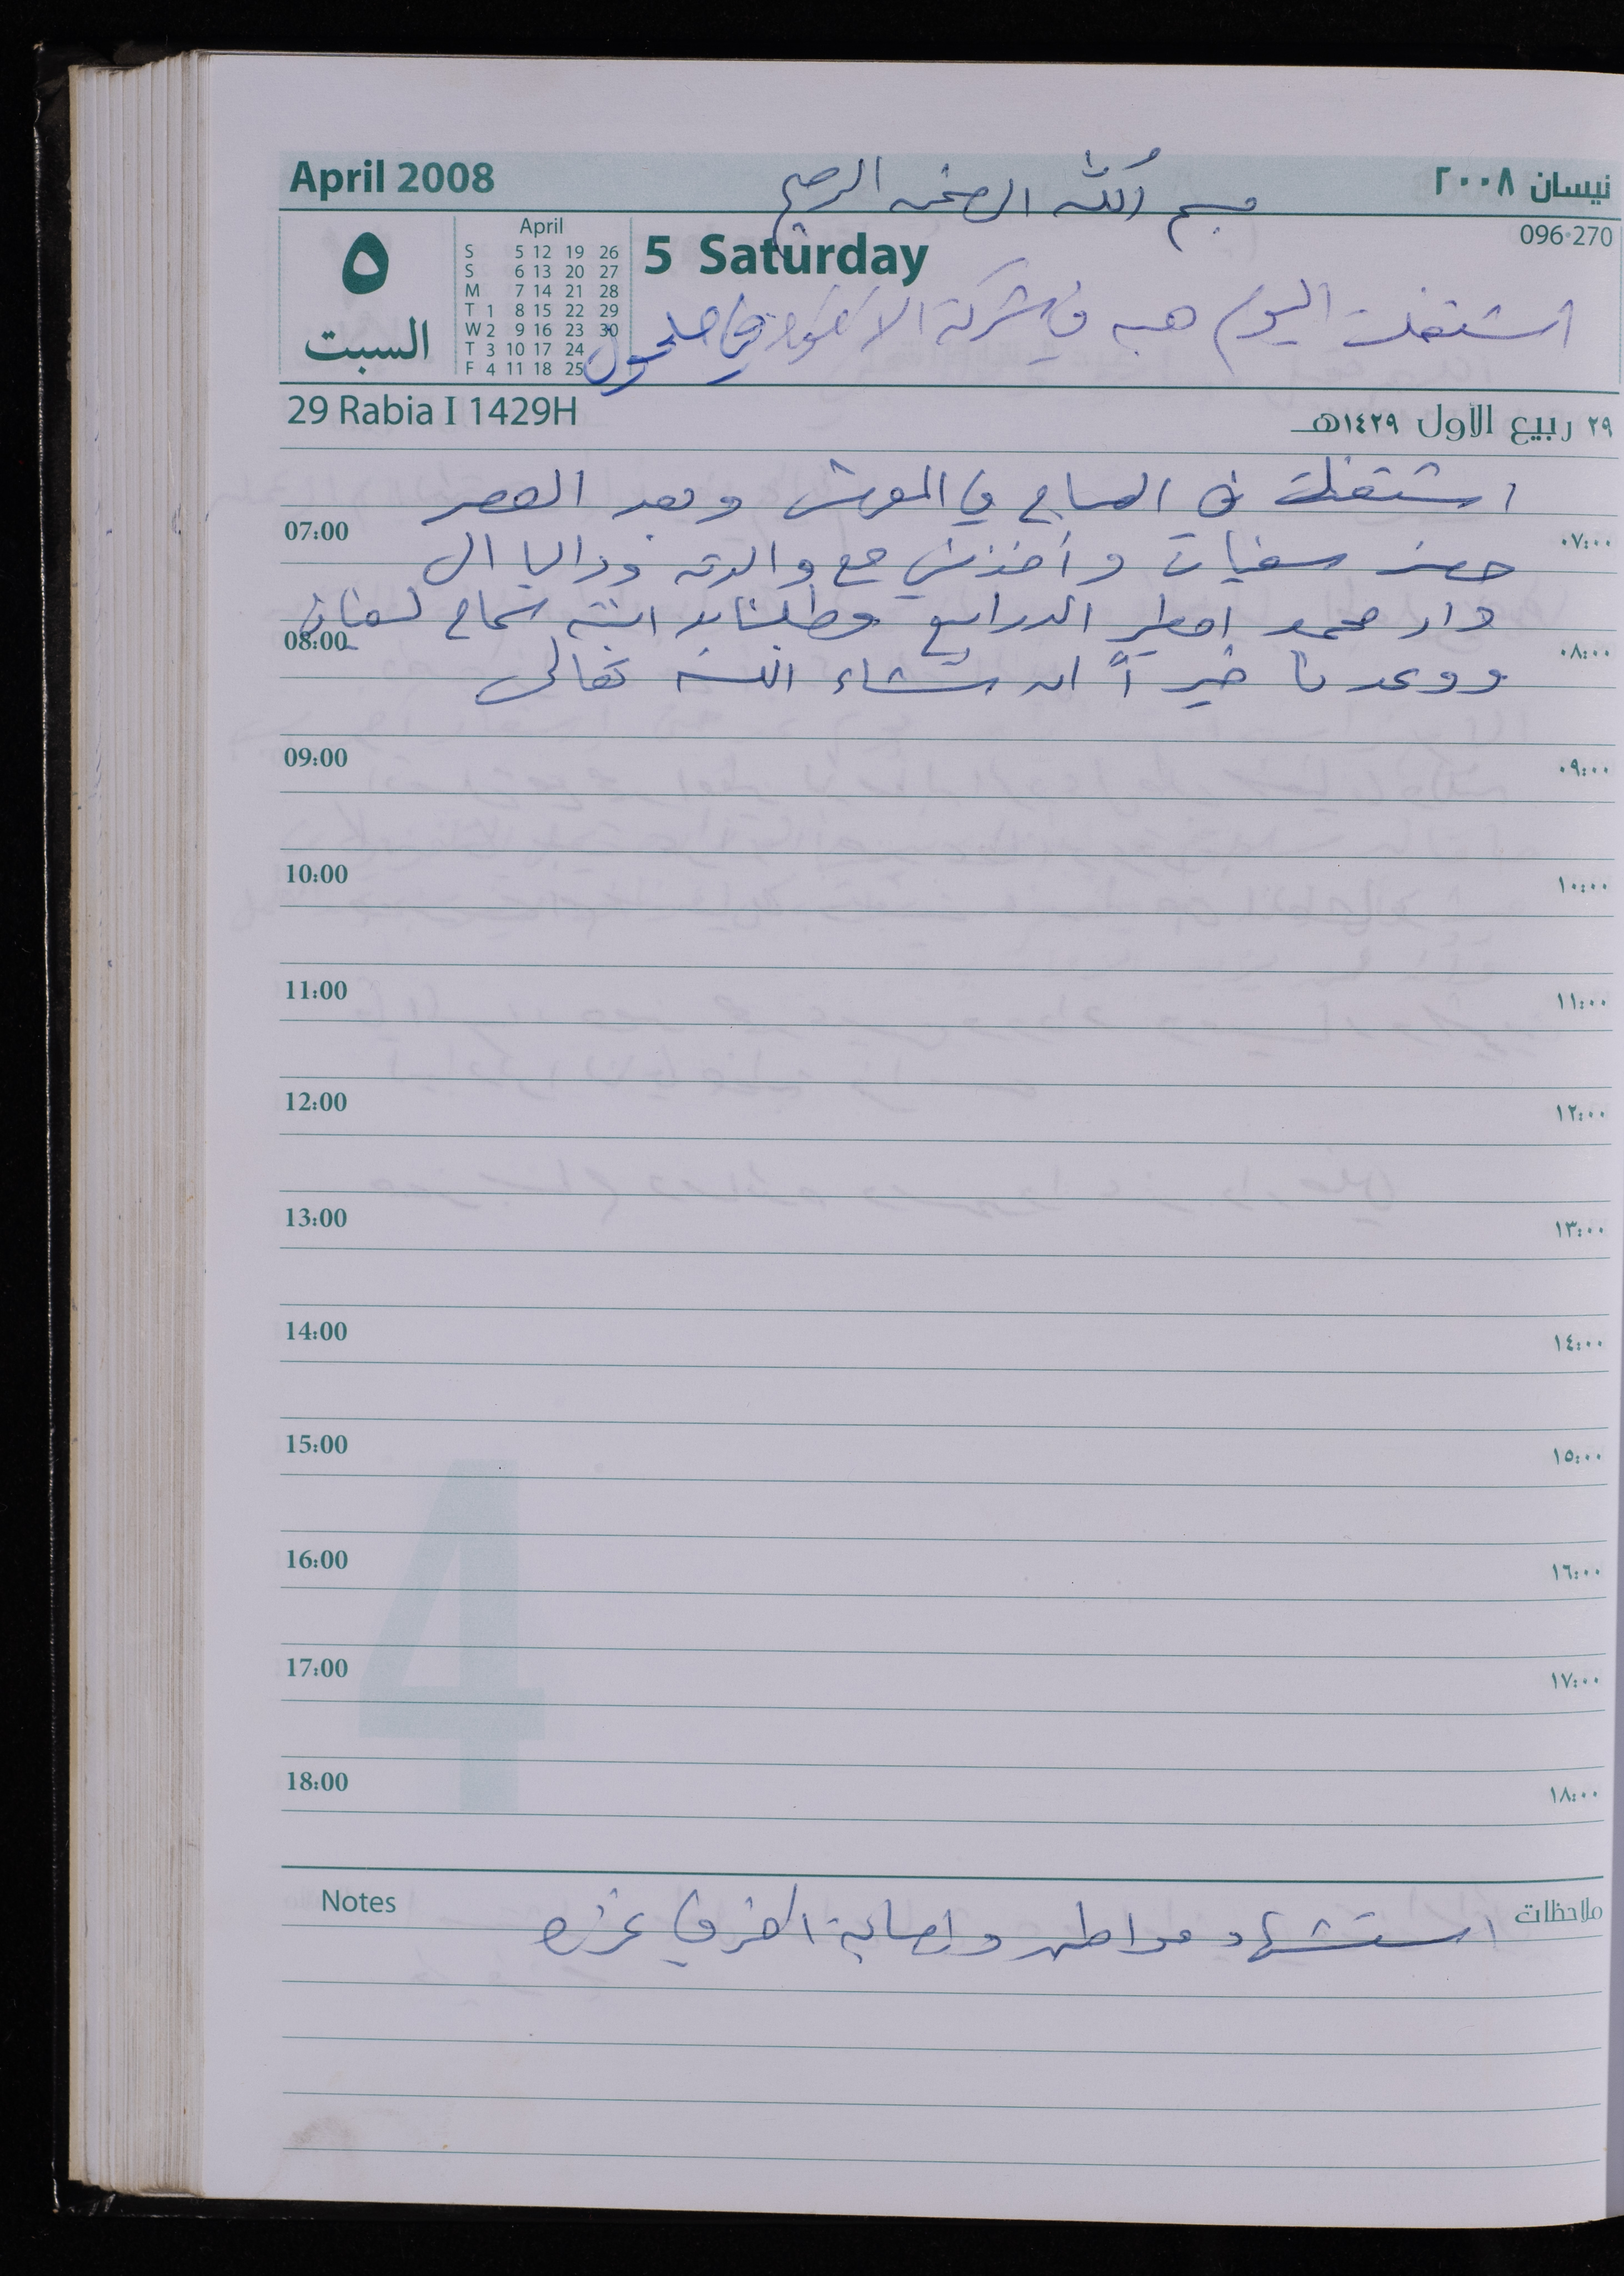 April 2008
نيسان ٢٠٠٨
بسم الله الرحمن الرحيم
096-270
5 Saturday
٥
السبت
April
S 5 12 19 26
S 6 13 20 27
M 7 14 21 28
T 1 8 15 22 29
W 2 9 16 23 30
T 3 10 17 24
F 4 11 18 25
اشتغلت اليوم هبه في شركة الا في حلحول
29 Rabia I 1429H
٢٩ ربيع الأول ١٤٢٩هـ
اشتغلت في الصباح في المورش وبعد العصر
حضر سفيان وأخذني مع والدته وداليا الى
دار محمد امطير الدرابيع وطلبنا ابنته سماح لسفيان
ووعدنا خيراً ان شاء الله تعالى
07:00 ٠٧:٠٠
08:00 ٠٨:٠٠
09:00 ٠٩:٠٠
10:00 ١٠:٠٠
11:00 ١١:٠٠
12:00 ١٢:٠٠
13:00 ١٣:٠٠
14:00 ١٤:٠٠
15:00 ١٥:٠٠
16:00 ١٦:٠٠
17:00 ١٧:٠٠
18:00 ١٨:٠٠
4
Notes
ملاحظات
استشهاد مواطن واصابة اخر في غزه